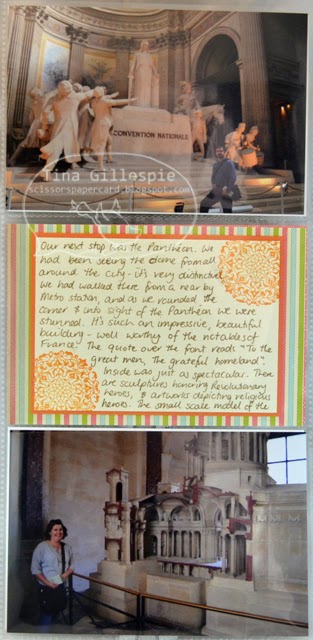 CONVENTION NATIONALE
Tina Gillespie
scissorspapercard.blogspot.com
Our next stop was the Panthéon. We
had been seeing the dome from all
around the city - it's very distinctive.
We had walked there from a near by
Metro station, and as we rounded the
corner & into sight of the Pantheon we were
stunned. It's such an impressive, beautiful
building - well worthy of the notables of
France. The quote over the font reads "To the
great men, The grateful homeland".
Inside was just as spectacular. There
are sculptures honoring Revolutionary
heroes, & artworks depicting religious
heroes. The small scale model of the